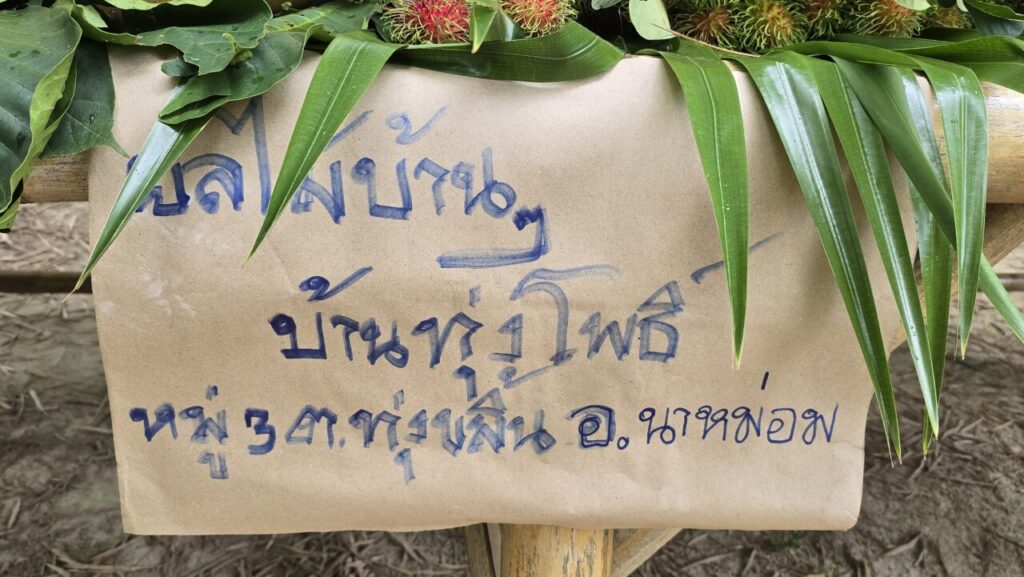 ผลไม้บ้านๆ
บ้านทุ่งโพธิ์
หมู่ 3 ต.ทุ่งขมิ้น อ.นาหม่อม